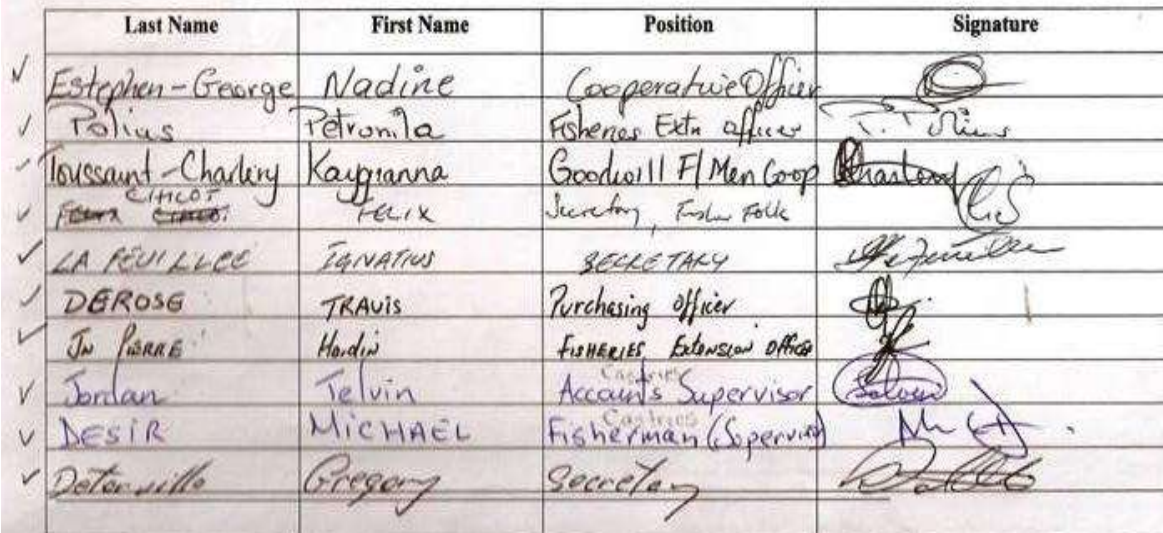 Last Name First Name Position Signature
Estephen-George Nadine Cooperative Officer
Polius Petronila Fisheries Extn Officer P. Polius
Toussaint-Charlery Kaygianna Goodwill F/Men Coop Charlery
CIMCOT
FELIX Secretary, Fisher Folk
LA FEUILLEE IGNATIUS SECRETARY
DEROSE TRAVIS Purchasing Officer
JN PIERRE Hardin FISHERIES EXTENSION OFFICER
Castries
Jordan Telvin Accounts Supervisor
Castries
DESIR MICHAEL Fisherman (Supervisor)
Deterville Gregory Secretary